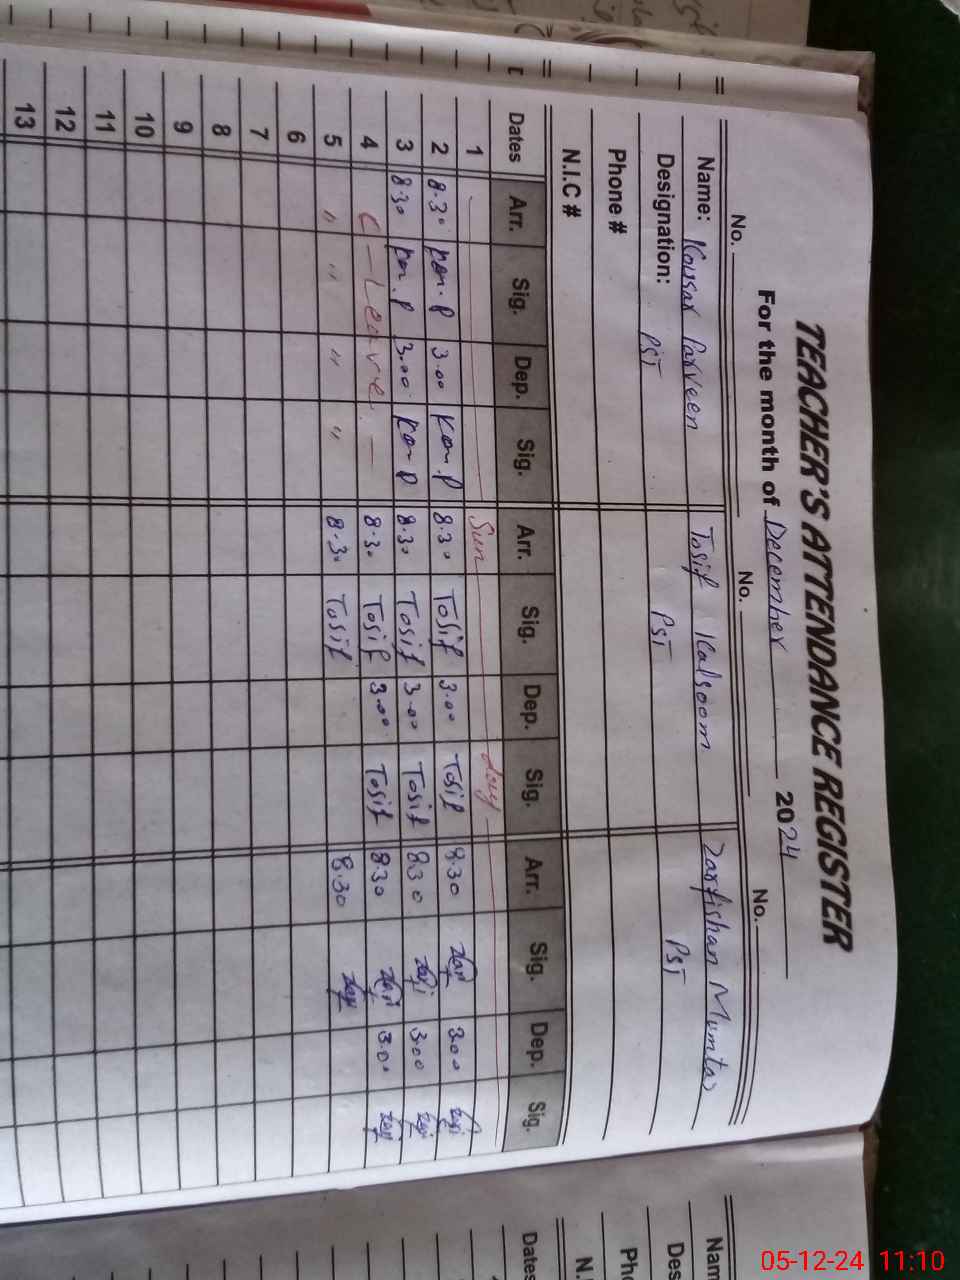 TEACHER'S ATTENDANCE REGISTER
For the month of December 2024
No. No. No.
Name: Kousar Parveen Tosif Kalsoom Zarfishan Mumtaz
Designation: PST PST PST
Phone #
N.I.C #
Dates Arr. Sig. Dep. Sig. Arr. Sig. Dep. Sig. Arr. Sig. Dep. Sig.
1 Sun day
2 8.30 Kou.P 3.00 Kou.P 8.30 Tosif 3.00 Tosif 8.30 3.00
3 8.30 Kou.P 3.00 Kou.P 8.30 Tosif 3.00 Tosif 8.30 3.00
4 C-Leavre. 8.30 Tosif 3.00 Tosif 8.30 3.00
5 " " " " 8.30 Tosif 8.30
6
7
8
9
10
11
12
13
Nam
Des
Pho
N.I
Dates
05-12-24 11:10